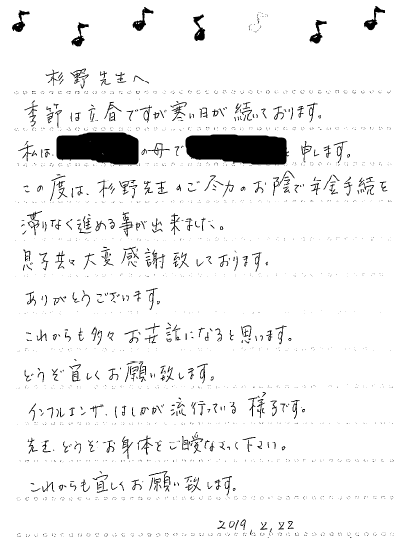 杉野先生へ
季節は立春ですが寒い日が続いております。
私は の母で と申します。
この度は、杉野先生のご尽力のお陰で年金手続を
滞りなく進める事が出来ました。
息子共々大変感謝致しております。
ありがとうございます。
これからも多々お世話になると思います。
どうぞ宜しくお願い致します。
インフルエンザ、はしかが流行っている様子です。
先生、どうぞお身体をご自愛なさって下さい。
これからも宜しくお願い致します。
2019, 2, 22